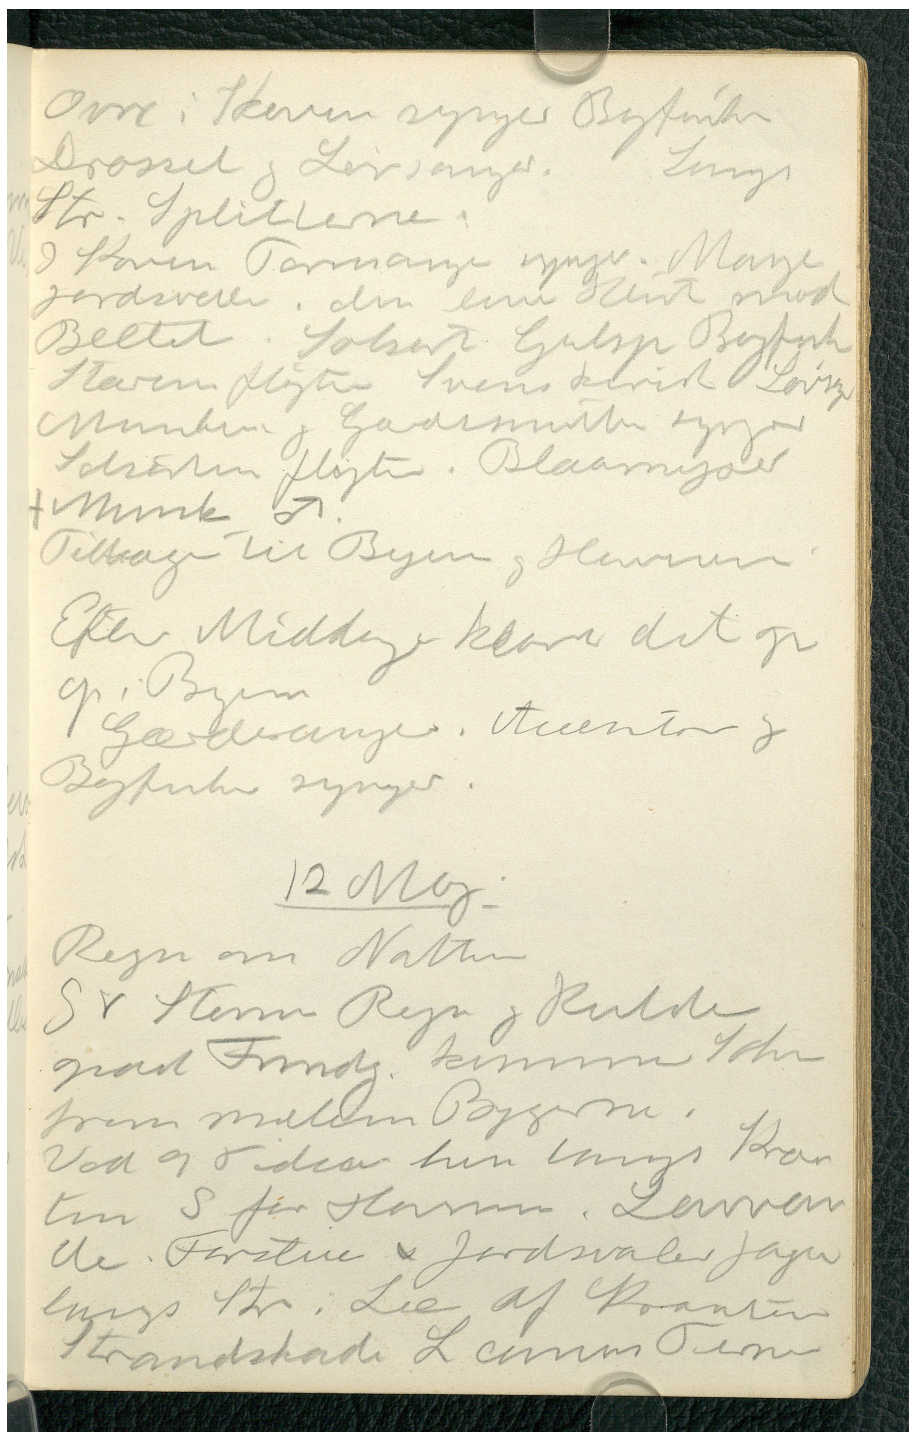 Ovre i Skoven synger Bogfinke
Drossel og Løvsanger. Langs
Str. Splitterne.
I Skoven Tornsanger synger. Mange
Jordsvaler. den lave Klint mod
Beltet. Solsort Gulsp Bogfink
Stæren fløjter Svenskerirk Løvsg
Munken og Gærdesmutten synger
Solsorten fløjter. Blaamejser
+ Munk ♂.
Tilbage til Byen og Havnen
Efter Middag klare det op
op i Byen
Gærdesanger. Accentor og
Bogfinke synger.
12 Maj.
Regn om Natten
SV Storm Regn og Kulde
graat kommer Solen
frem mellem Bygerne.
Ved 9 Tiden hen langs Kran
ten S for Havnen. Lavvan
de. Forstue & Jordsvaler jager
langs Str. i Læ af Kranten
Strandskade L canus Terne